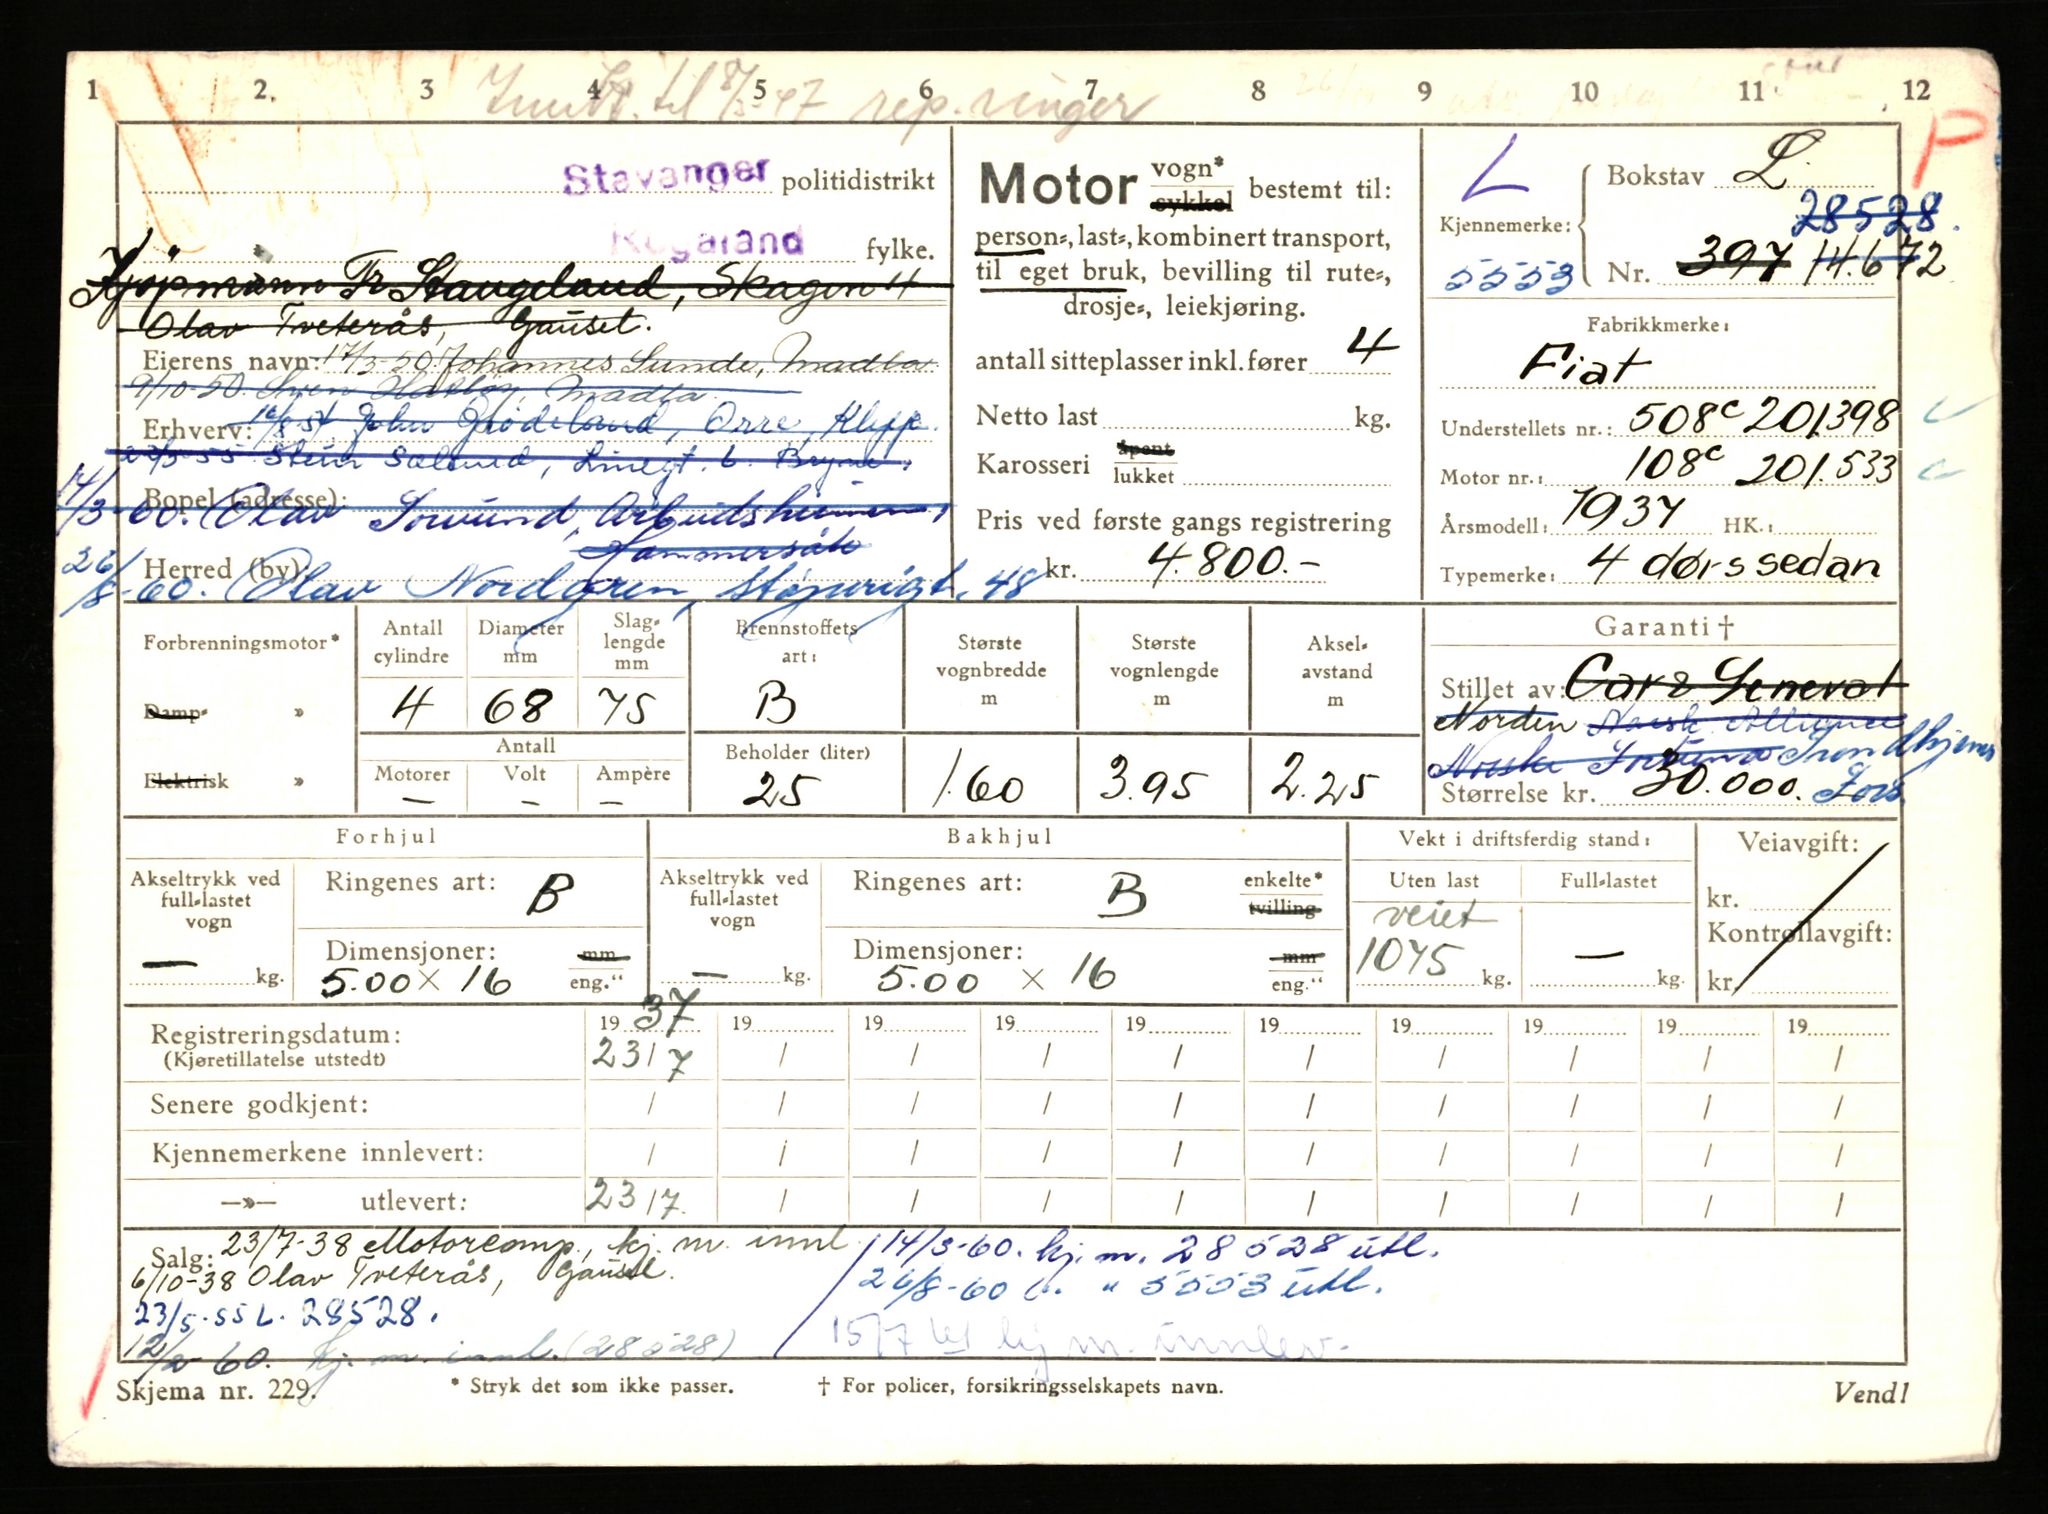 1 2. 3 4 5 6 7 8 9 10 11 12
til 8/5-47 rep. ringer
P
Stavanger politidistrikt
Rogaland fylke.
Kjøpmann Fr Stangeland, Skagen 4
Olav Tveterås, Gausel.
Eierens navn: 17/3-50 Johannes Sunde, Madla
9/10-50 Sven Madla
Erhverv: John Grødeland, Orre, Klepp.
Bryne.
Bopel (adresse):
14/3-60. Olav Sørvund, Arbeidsheimen,
Hammersåt
Herred (by):
26/8-60. Olav Nordgren, Støperigt. 48
Motor vogn* sykkel bestemt til:
person=, last=, kombinert transport,
til eget bruk, bevilling til rute=,
drosje=, leiekjøring.
antall sitteplasser inkl. fører 4
Netto last kg.
Karosseri åpent lukket
Pris ved første gangs registrering
kr. 4.800.-
L
Bokstav L.
28528.
Kjennemerke:
5553 Nr. 397 14.672
Fabrikkmerke:
Fiat
Understellets nr.: 508c 201.398
Motor nr.: 108c 201.533
Årsmodell: 1937 HK.:
Typemerke: 4 dørs sedan
Forbrenningsmotor*
Damp= »
Elektrisk »
Antall cylindre 4
Diameter mm 68
Slag=lengde mm 75
Antall
Motorer —
Volt —
Ampère —
Brennstoffets art: B
Beholder (liter) 25
Største vognbredde m 1.60
Største vognlengde m 3.95
Aksel=avstand m 2.25
Garanti †
Stillet av: Car & General
Norden Norsk Alliance
Norske Fortuna Trondhjems
Størrelse kr. 30.000. Fors.
Forhjul
Akseltrykk ved full=lastet vogn — kg.
Ringenes art: B
Dimensjoner: mm
5.00 × 16 eng."
Bakhjul
Akseltrykk ved full=lastet vogn — kg.
Ringenes art: B enkelte* tvilling
Dimensjoner: mm
5.00 × 16 eng."
Vekt i driftsferdig stand:
Uten last Full=lastet
veiet
1075 kg. — kg.
Veiavgift:
kr.
Kontrollavgift:
kr.
Registreringsdatum: 19 37 19 19 19 19 19 19 19 19 19
(Kjøretillatelse utstedt) 23/7 / / / / / / / / /
Senere godkjent: / / / / / / / / / /
Kjennemerkene innlevert: / / / / / / / / / /
—»— utlevert: 23/7. / / / / / / / / /
Salg: 23/7-38 Motorcomp., kj. m. innl.
6/10-38 Olav Tveterås, Gausel.
23/5-55 L. 28528.
12/2-60. kj. m. innl. (28528)
14/3-60. kj. m. 28528 utl.
26/8-60 " 5553 utl.
15/7 61 kj m. innlev.
Skjema nr. 229.
* Stryk det som ikke passer.
† For policer, forsikringsselskapets navn.
Vend!